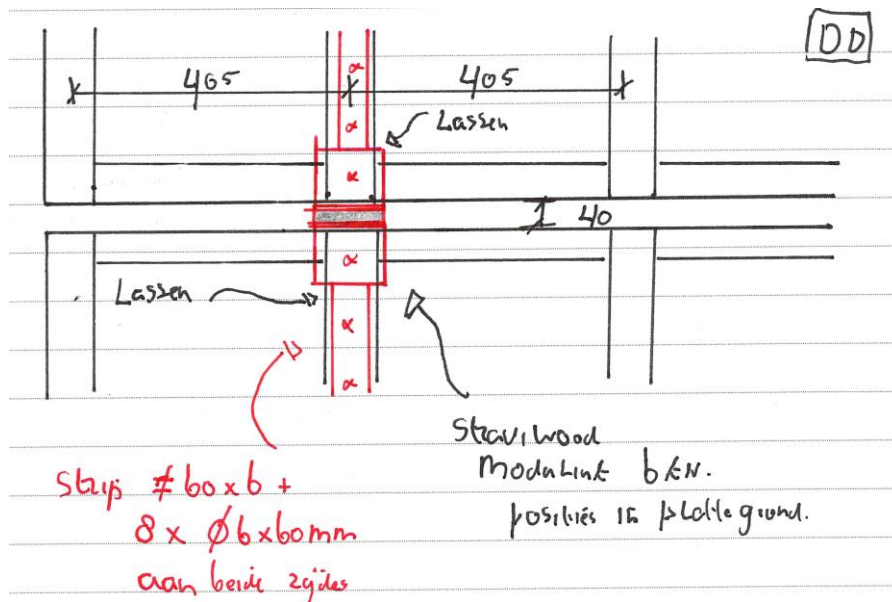 DD
405
405
Lassen
40
Lassen
Straviwood
ModuLink 6 kN.
posities in plattegrond.
Strip ≠ 60x6 +
8 x Ø6x60mm
aan beide zijdes